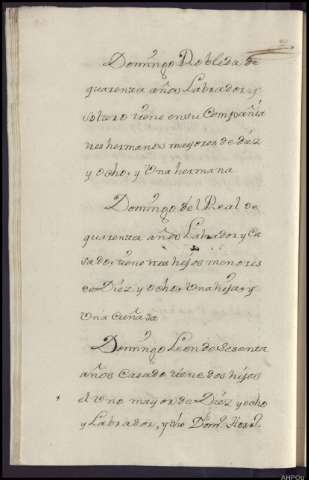 Domingo Robleda de
quarenta años Labrador, y
soltero tiene en su Compañia
tres hermanos mayores de diez
y ocho, y Una hermana
Domingo del Real de
quarenta años Labrador y Ca
sado, tiene tres hijos menores
de Diez y ocho, Una hija, y
Una Cuñada
Domingo Leon de Sesenta
años Casado tiene dos hijos
el Uno mayor de Diez y ocho
y Labrador, y
AHPOu